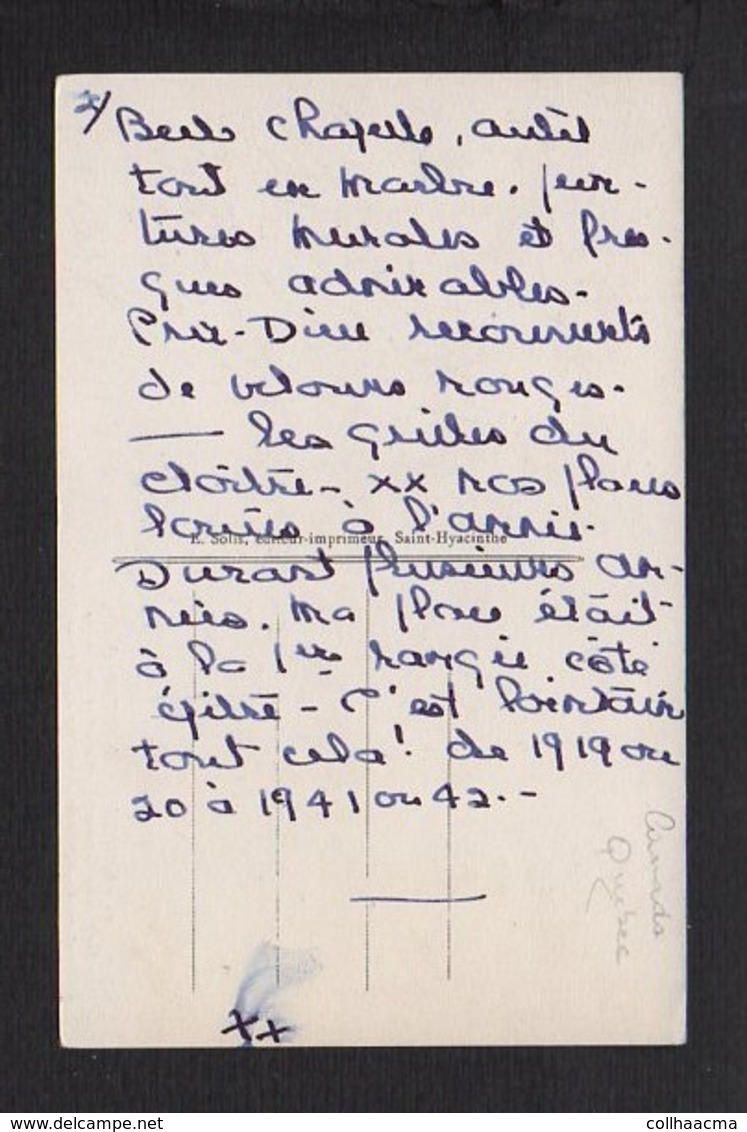 2/ Belle chapelle, autel
tout en marbre. pein-
tures murales et fres-
ques admirables-
Prie-Dieu recouverts
de velours rouges-
— les grilles du
cloître- xx nos places
louées à l'année
E. Solis, éditeur-imprimeur, Saint-Hyacinthe
Durant plusieurs an-
nées. Ma place était
à la 1ère rangée côté
épître - C'est lointain
tout cela! de 1919 ou
20 à 1941 ou 42.-
Canada
Quebec
xx
collhaacma
www.delcampe.net